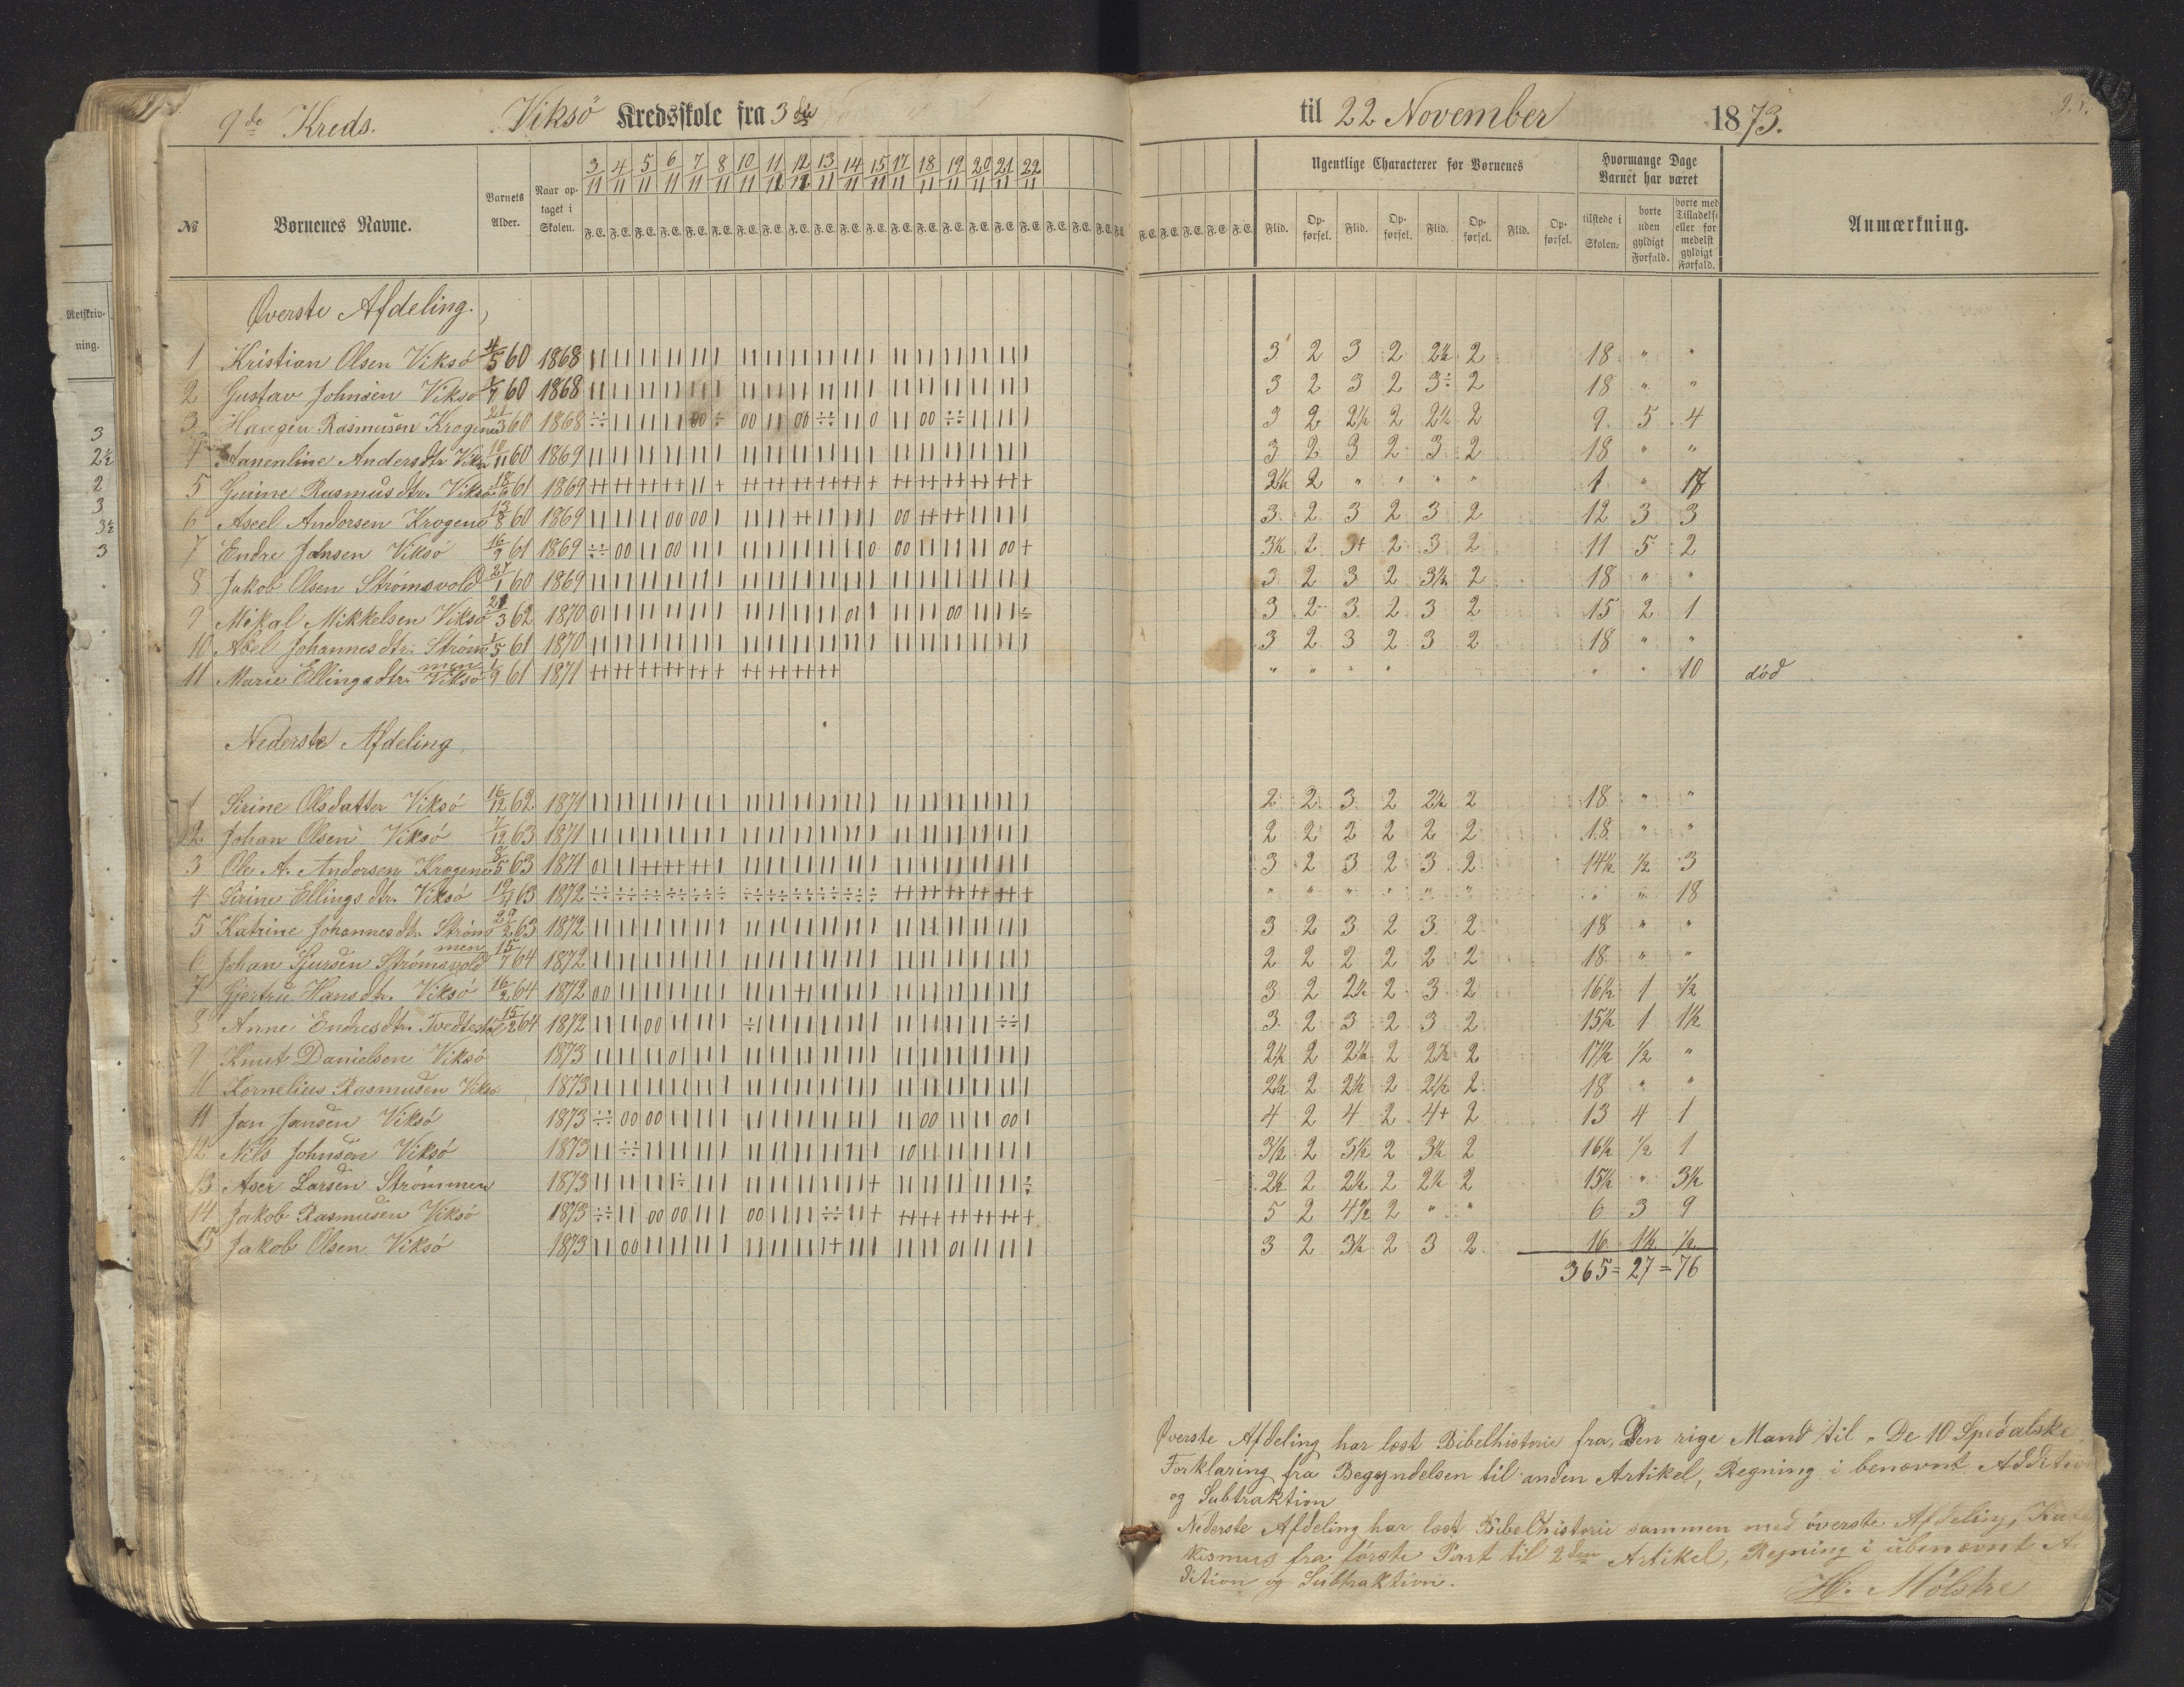 9de Kreds. Viksö Kredsskole fra 3die til 22 November 1873.
№ Børnenes Navne. Barnets Alder. Naar optaget i Skolen. 3/11 4/11 5/11 6/11 7/11 8/11 10/11 11/11 12/11 13/11 14/11 15/11 17/11 18/11 19/11 20/11 21/11 22/11
F. E. F. E. F. E. F. E. F. E. F. E. F. E. F. E. F. E. F. E. F. E. F. E. F. E. F. E. F. E. F. E. F. E. F. E. F. E. F. E.
Ugentlige Characterer for Børnenes Hvormange Dage Barnet har været Anmærkning.
Flid. Opførsel. Flid. Opførsel. Flid. Opførsel. Flid. Opførsel. tilstede i Skolen. borte uden gyldigt Forfald. borte med Tilladelse eller formedelst gyldigt Forfald.
Retskrivning.
3
2½
2
3
3½
3
Øverste Afdeling.
1 Kristian Olsen Viksö 4/5 60 1868 3 2 3 2 2½ 2 18 " "
2 Gustav Johnsen Viksö 1/7 60 1868 3 2 3 2 3÷ 2 18 " "
3 Haagen Rasmusen Krogenes 21/3 60 1868 3 2 2½ 2 2½ 2 9 5 4
4 Aanenline Andersdtr Viksö 10/11 60 1869 3 2 3 2 3 2 18 " "
5 Gurine Rasmusdtr. Viksö 18/6 61 1869 2½ 2 " " " " 1 " 17
6 Aseel Andersen Krogene 13/8 60 1869 3 2 3 2 3 2 12 3 3
7 Endre Johnsen Viksö 16/9 61 1869 3½ 2 3+ 2 3 2 11 5 2
8 Jakob Olsen Strömsvold 27/1 60 1869 3 2 3 2 3½ 2 18 " "
9 Mikal Mikkelsen Viksö 21/3 62 1870 3 2 3 2 3 2 15 2 1
10 Abel Johannesdtr. Strömmen 1/5 61 1870 3 2 3 2 3 2 18 " "
11 Marie Ellingsdtr. Viksö 1/9 61 1871 " " " " " " 10 död
Nederste Afdeling.
1 Sirine Olsdatter Viksö 16/12 62 1871 2 2 3 2 2½ 2 18 " "
2 Johan Olsen Viksö 7/12 63 1871 2 2 2 2 2 2 18 " "
3 Ole A. Andersen Krogene 8/5 63 1871 3 2 3 2 3 2 14½ ½ 3
4 Sirine Ellingsdtr. Viksö 63 1872 " " " " " " " " 18
5 Katrine Johannesdtr. Strömmen 29/2 63 1872 3 2 3 2 3 2 18 " "
6 Johan Sjursen Strömsvold 15/7 64 1872 2 2 2 2 2 2 18 " "
7 Gjertru Hansdtr. Viksö 16/2 64 1872 3 2 2½ 2 3 2 16½ 1 ½
8 Anne Endresdtr. 15/2 64 1872 3 2 3 2 3 2 15½ 1 1½
9 Knut Danielsen Viksö 1873 2½ 2 2½ 2 2½ 2 17½ ½ "
10 Kornelius Rasmusen Viksö 1873 2½ 2 2½ 2 2½ 2 18 " "
11 Jan Jansen Viksö 1873 4 2 4 2 4+ 2 13 4 1
12 Nils Johnsen Viksö 1873 3½ 2 3½ 2 3½ 2 16½ ½ 1
13 Aser Larsen Strömmen 1873 2½ 2 2½ 2 2½ 2 15½ " 3½
14 Jakob Rasmusen Viksö 1873 5 2 4½ 2 " " 6 3 9
15 Jakob Olsen Viksö 1873 3 2 3½ 2 3 2 16 1½ ½
365 = 27 = 76
Øverste Afdeling har læst Bibelhistorie fra, Den rige Mand til „De 10 Spedalske
Forklaring fra Begyndelsen til anden Artikel, Regning i benævnt Addition
og Subtraktion
Nederste Afdeling har læst Bibelhistorie sammen med överste Afdeling, Kate
kismus fra förste Part til 2den Artikel, Regning i ubenævnt A
dition og Subtraktion.
H. Mölstre